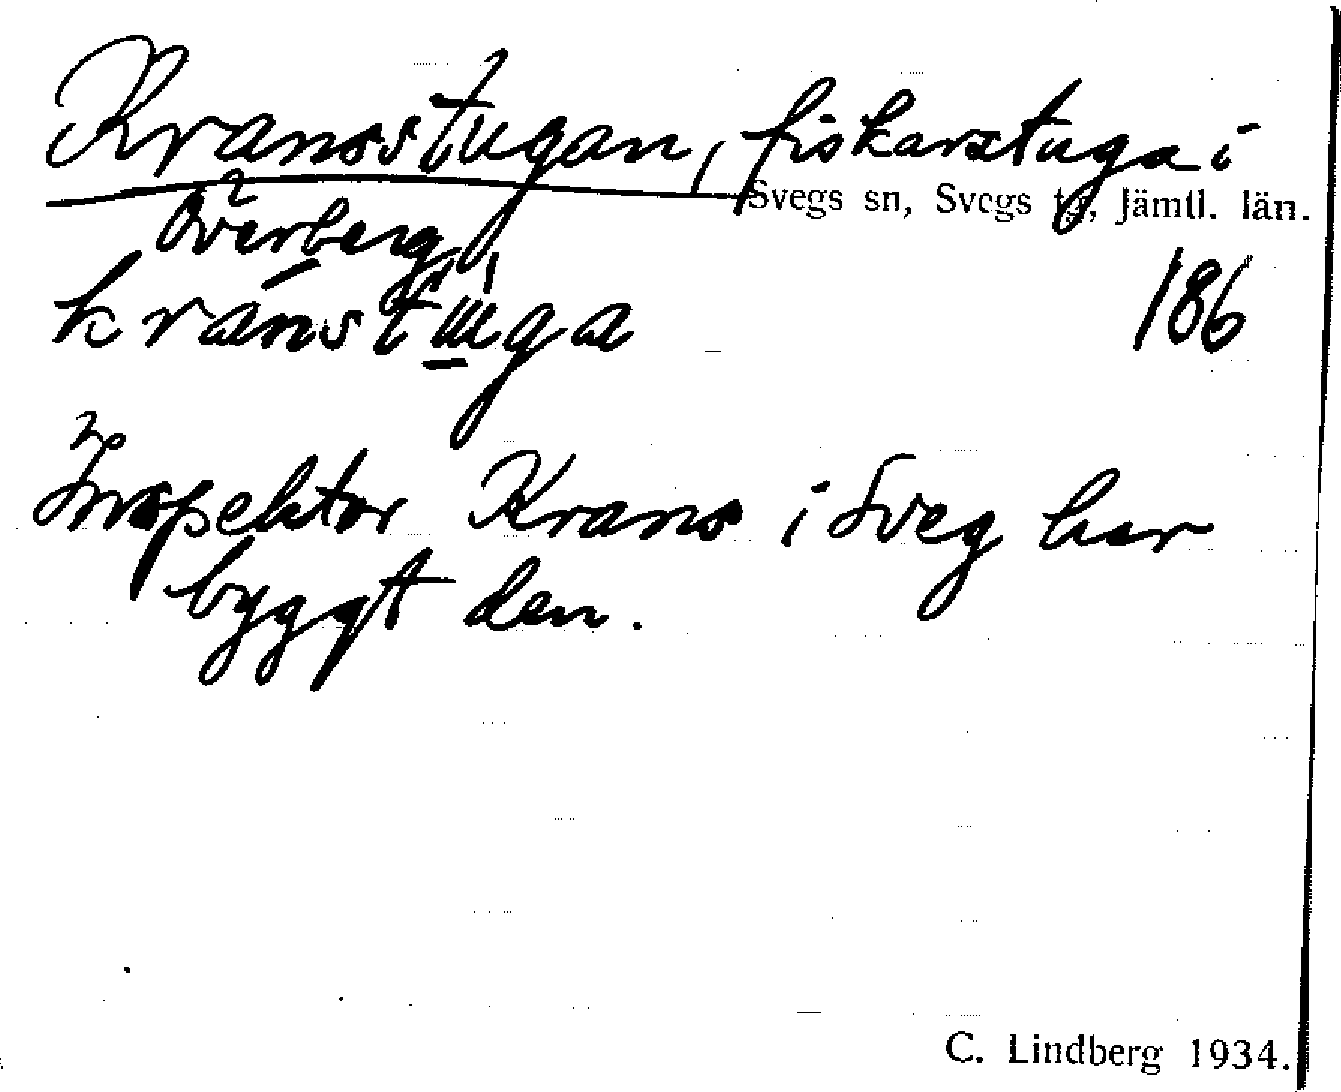 Kransstugan, fiskarstuga i
Svegs sn, Svegs ts, Jämtl. län.
Överberg
kránstùga
186
Inspektor Krans i Sveg har
byggt den.
C. Lindberg 1934.